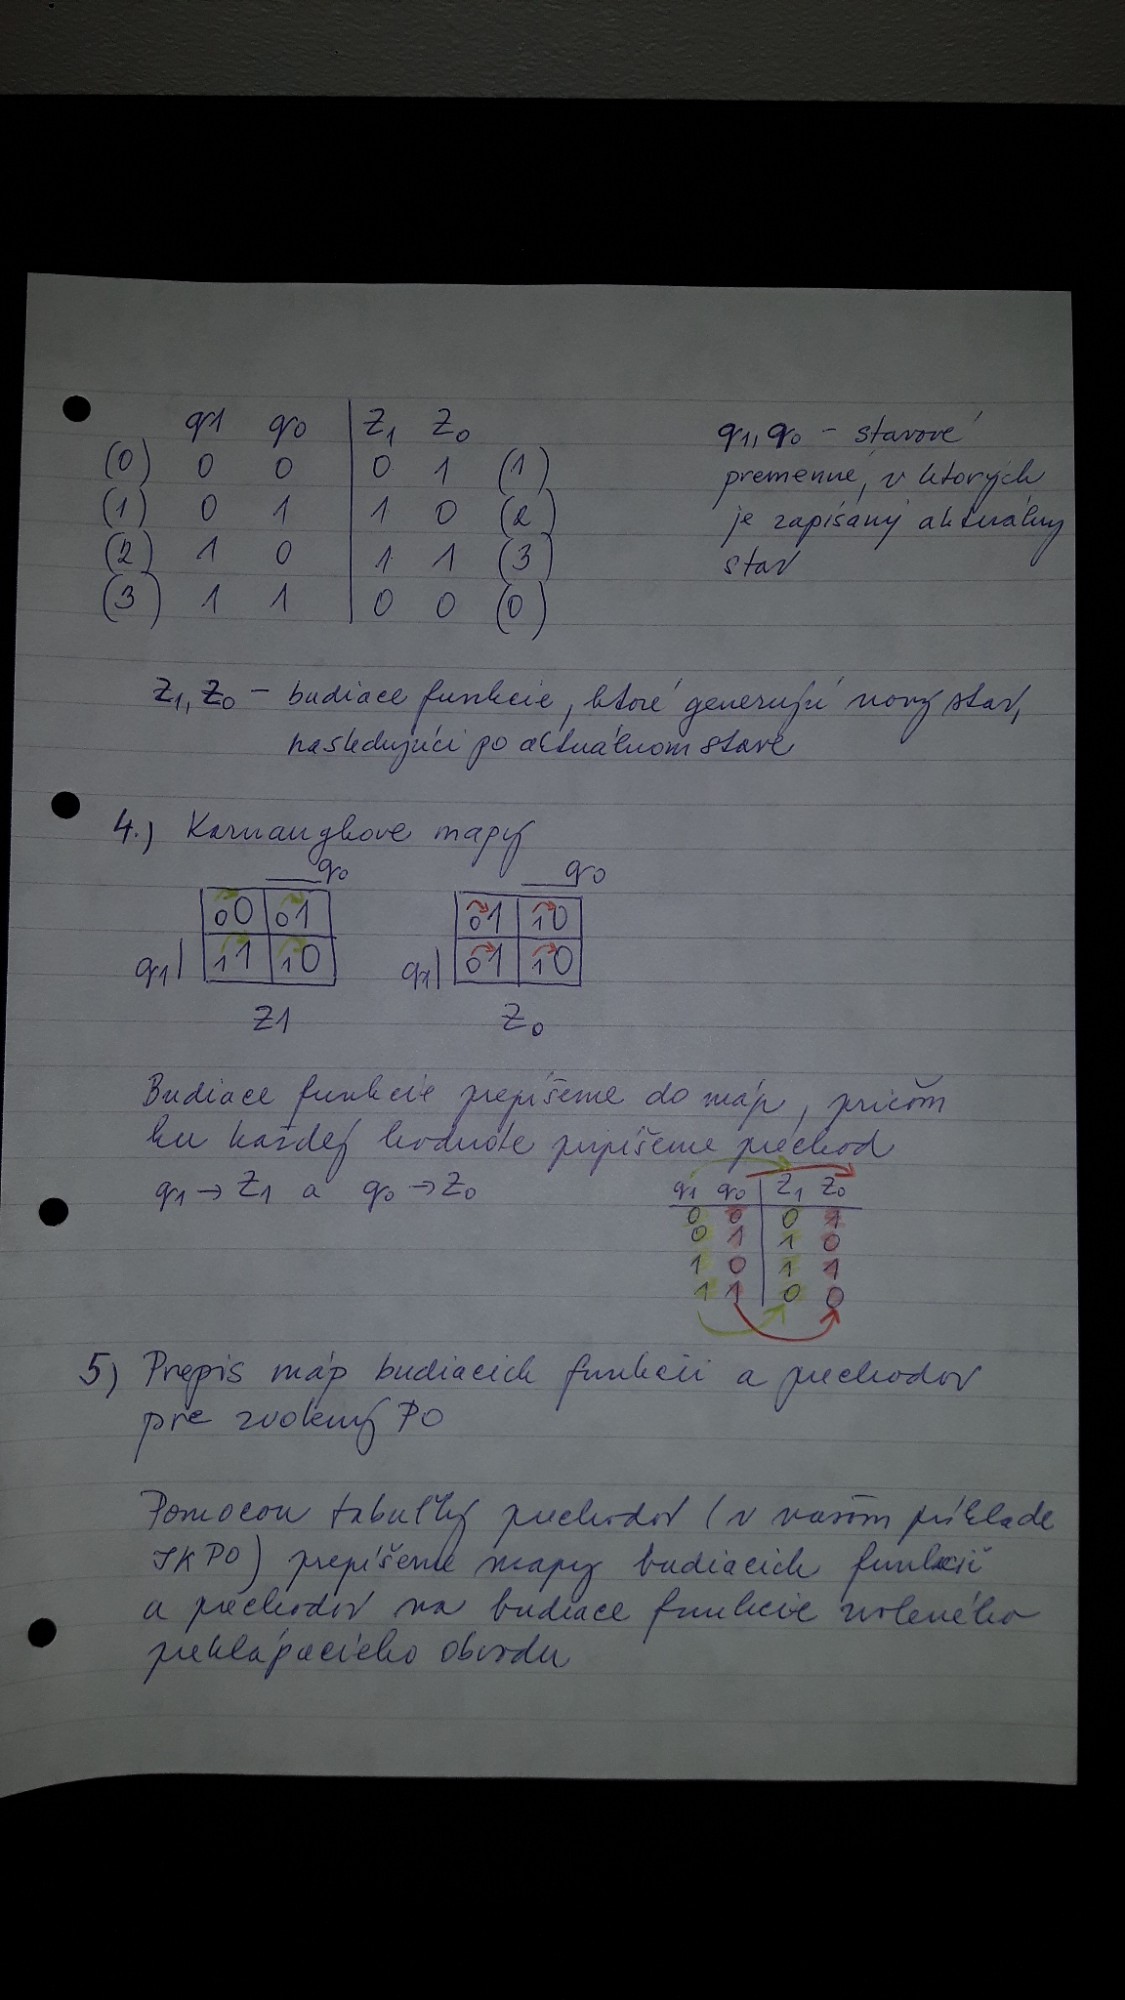 q1 q0 | Z1 Z0
(0) 0 0 | 0 1 (1)
(1) 0 1 | 1 0 (2)
(2) 1 0 | 1 1 (3)
(3) 1 1 | 0 0 (0)
q1, q0 – stavové
premenné, v ktorých
je zapísaný aktuálny
stav
Z1, Z0 – budiace funkcie, ktoré generujú nový stav,
nasledujúci po aktuálnom stave
4.) Karnaughove mapy
q0
00 01
q1 11 10
Z1
q0
01 10
q1 01 10
Z0
Budiace funkcie prepíšeme do máp, pričom
ku každej hodnote pripíšeme prechod
q1 → Z1 a q0 → Z0
q1 q0 | Z1 Z0
0 0 | 0 1
0 1 | 1 0
1 0 | 1 1
1 1 | 0 0
5) Prepis máp budiacich funkcií a prechodov
pre zvolený PO
Pomocou tabuľky prechodov (v našom príklade
JK PO) prepíšeme mapy budiacich funkcií
a prechodov na budiace funkcie zvoleného
preklápacieho obvodu